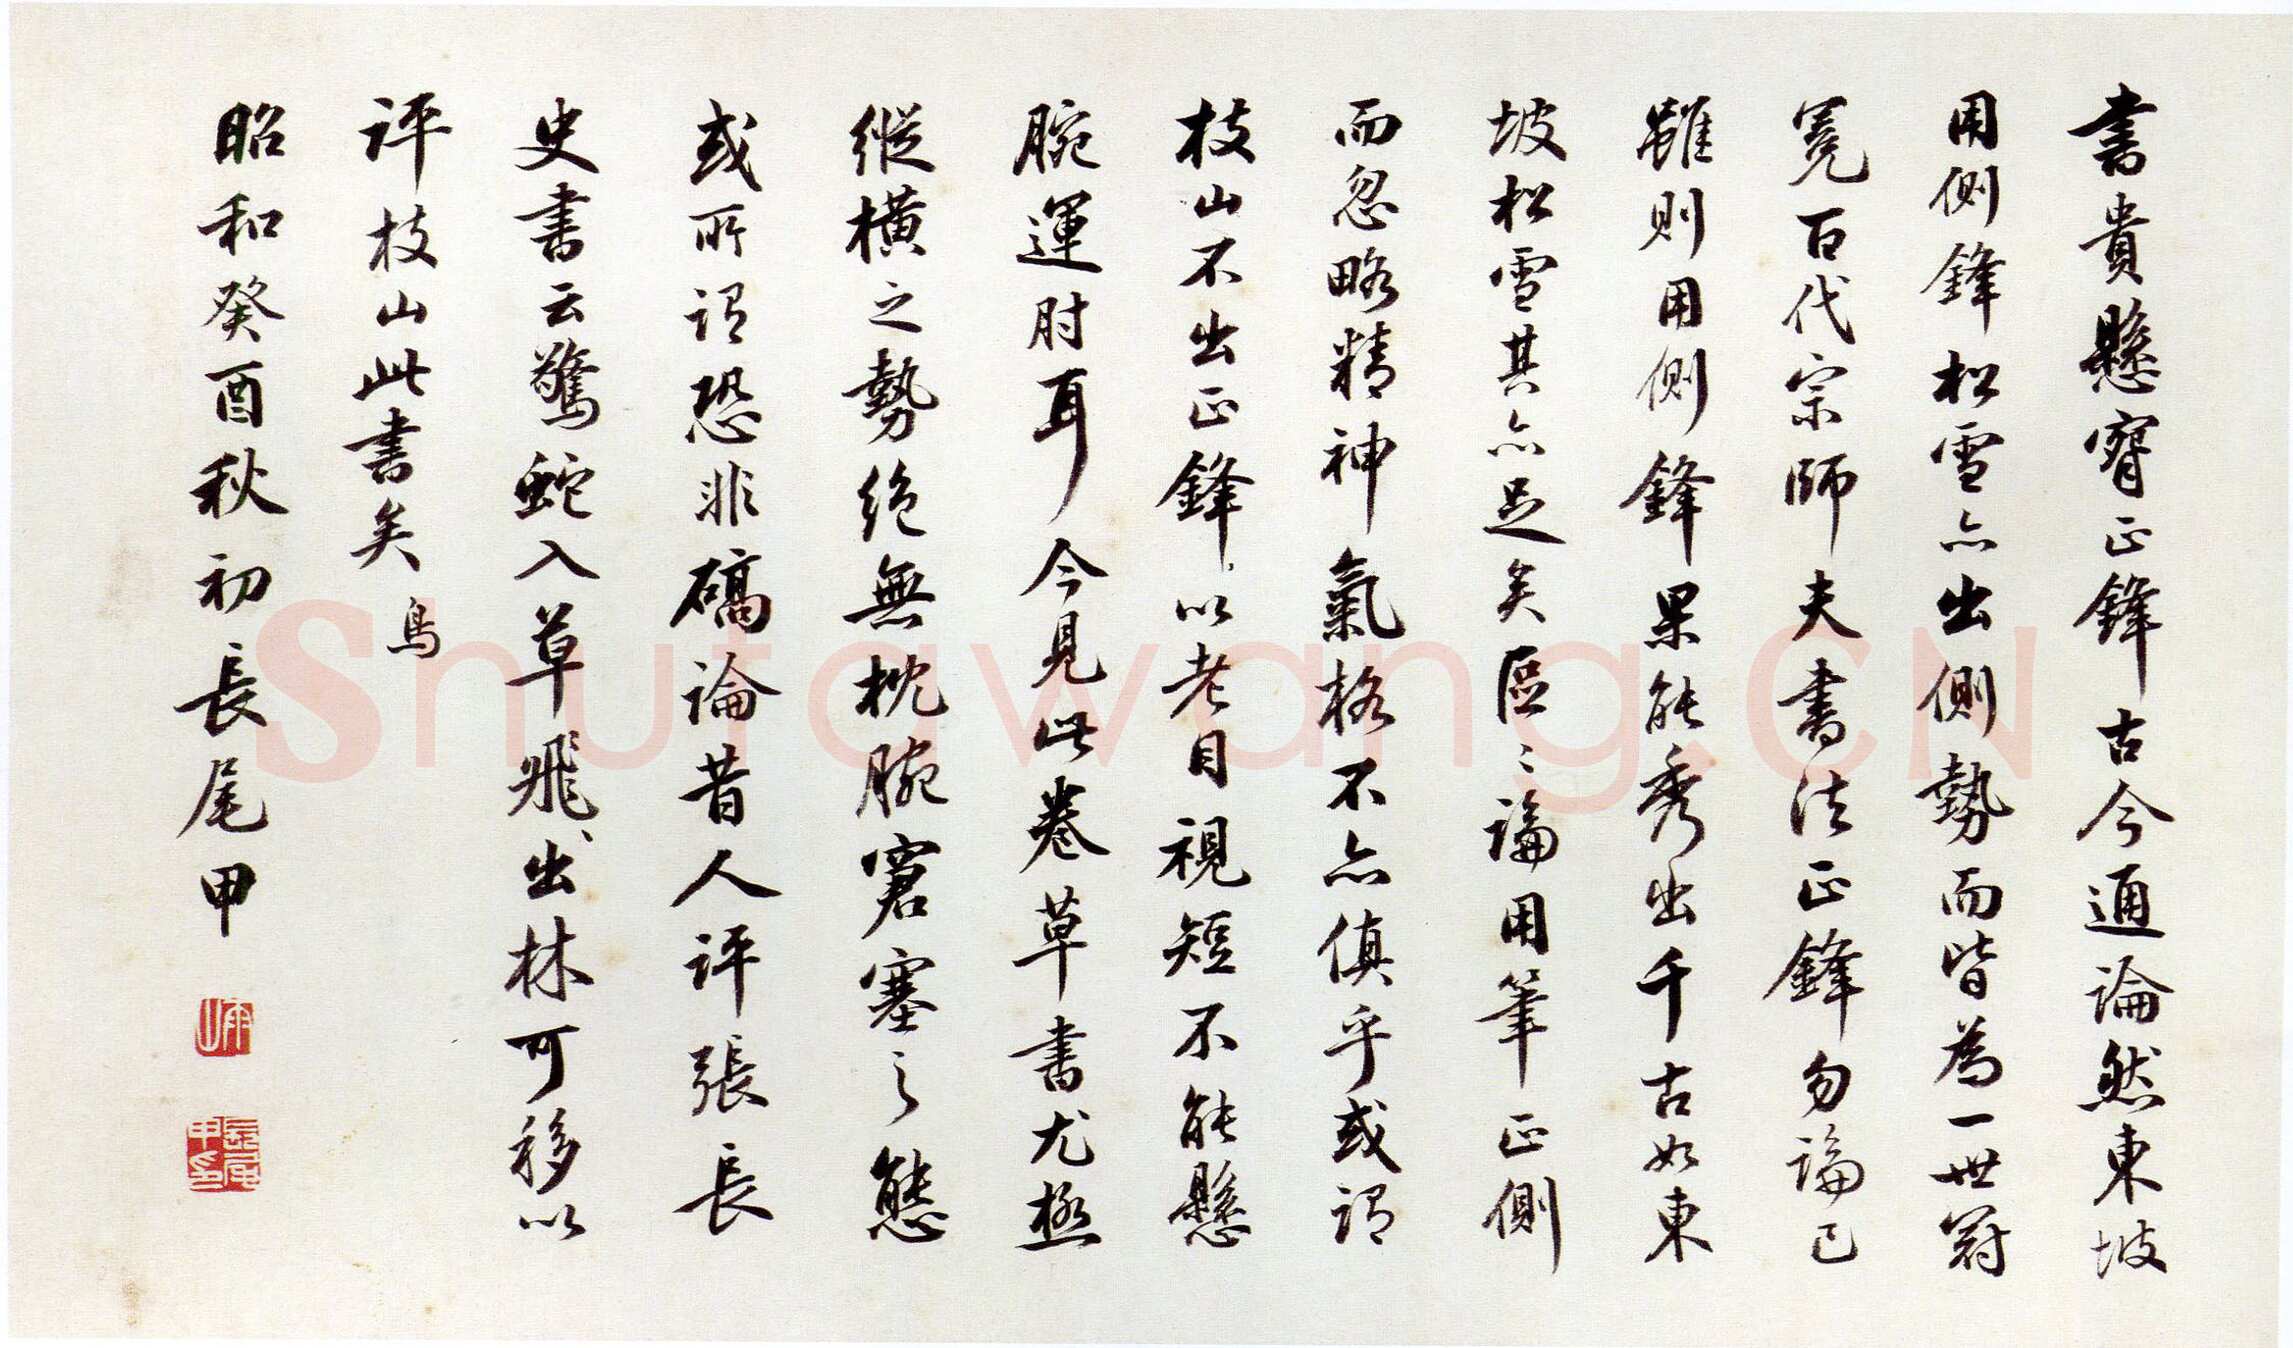 書貴懸窅正鋒古今通論然東坡
用側鋒松雪亦出側勢而皆為一世冠
冕百代宗師夫書法正鋒勿論已
雖則用側鋒果能秀出千古如東
坡松雪其亦足矣區〻論用筆正側
而忽略精神氣格不亦傎乎或謂
枝山不出正鋒以老目視短不能懸
腕運肘耳今見此卷草書尤極
縱橫之勢絶無枕腕窘塞之態
或所謂恐非碻論昔人評張長
史書云驚蛇入草飛出林可移以
評枝山此書矣 鳥
昭和癸酉秋初長尾甲
雨山
長尾甲印
Shufawang.CN